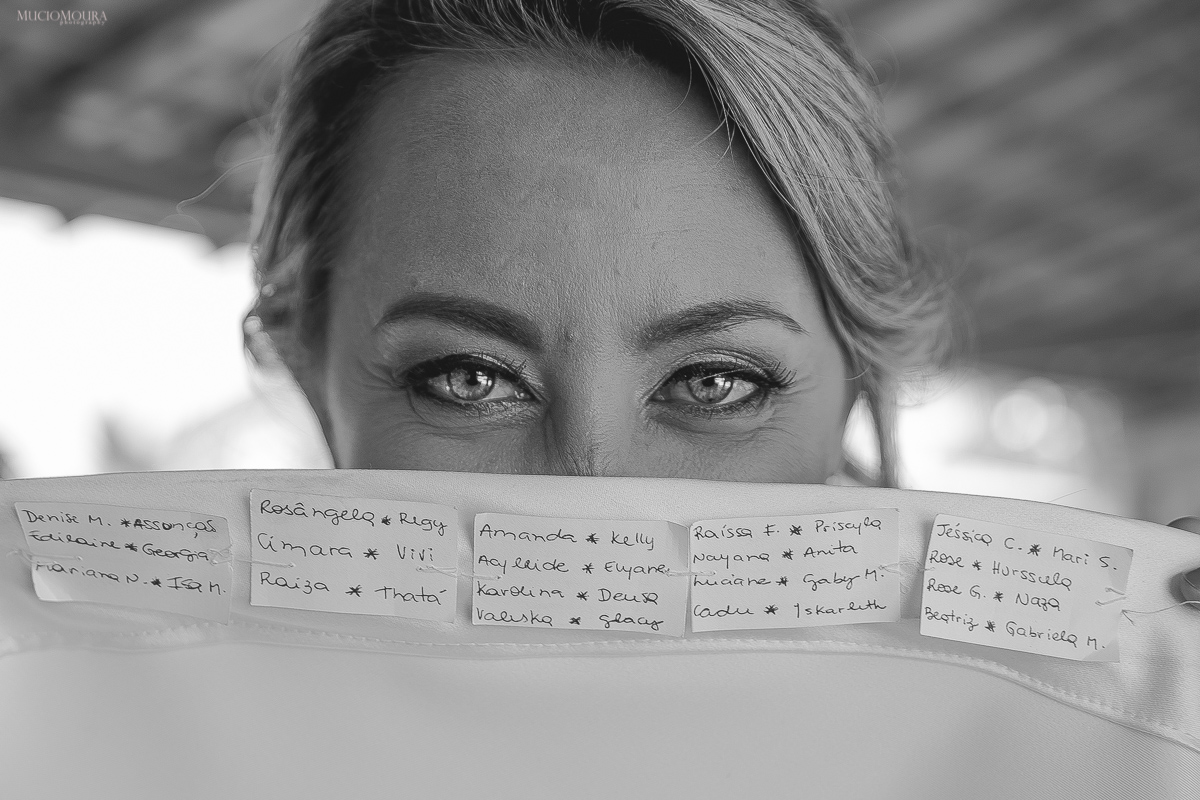 MUCIOMOURA
photography
Denise M. * Assonças
Edilaine * Georgia
Mariana N. * Isa M.
Rosângela * Regy
Cimara * Vivi
Raiza * Thatá
Amanda * Kelly
Acylleide * Elyane
Karolina * Deusa
Valeska * Glacy
Raíssa F. * Priscyla
Nayana * Anita
Luciane * Gaby M.
Cadu * Iskarleth
Jéssica C. * Mari S.
Rose * Hurssula
Rose G. * Naza
Beatriz * Gabriela M.